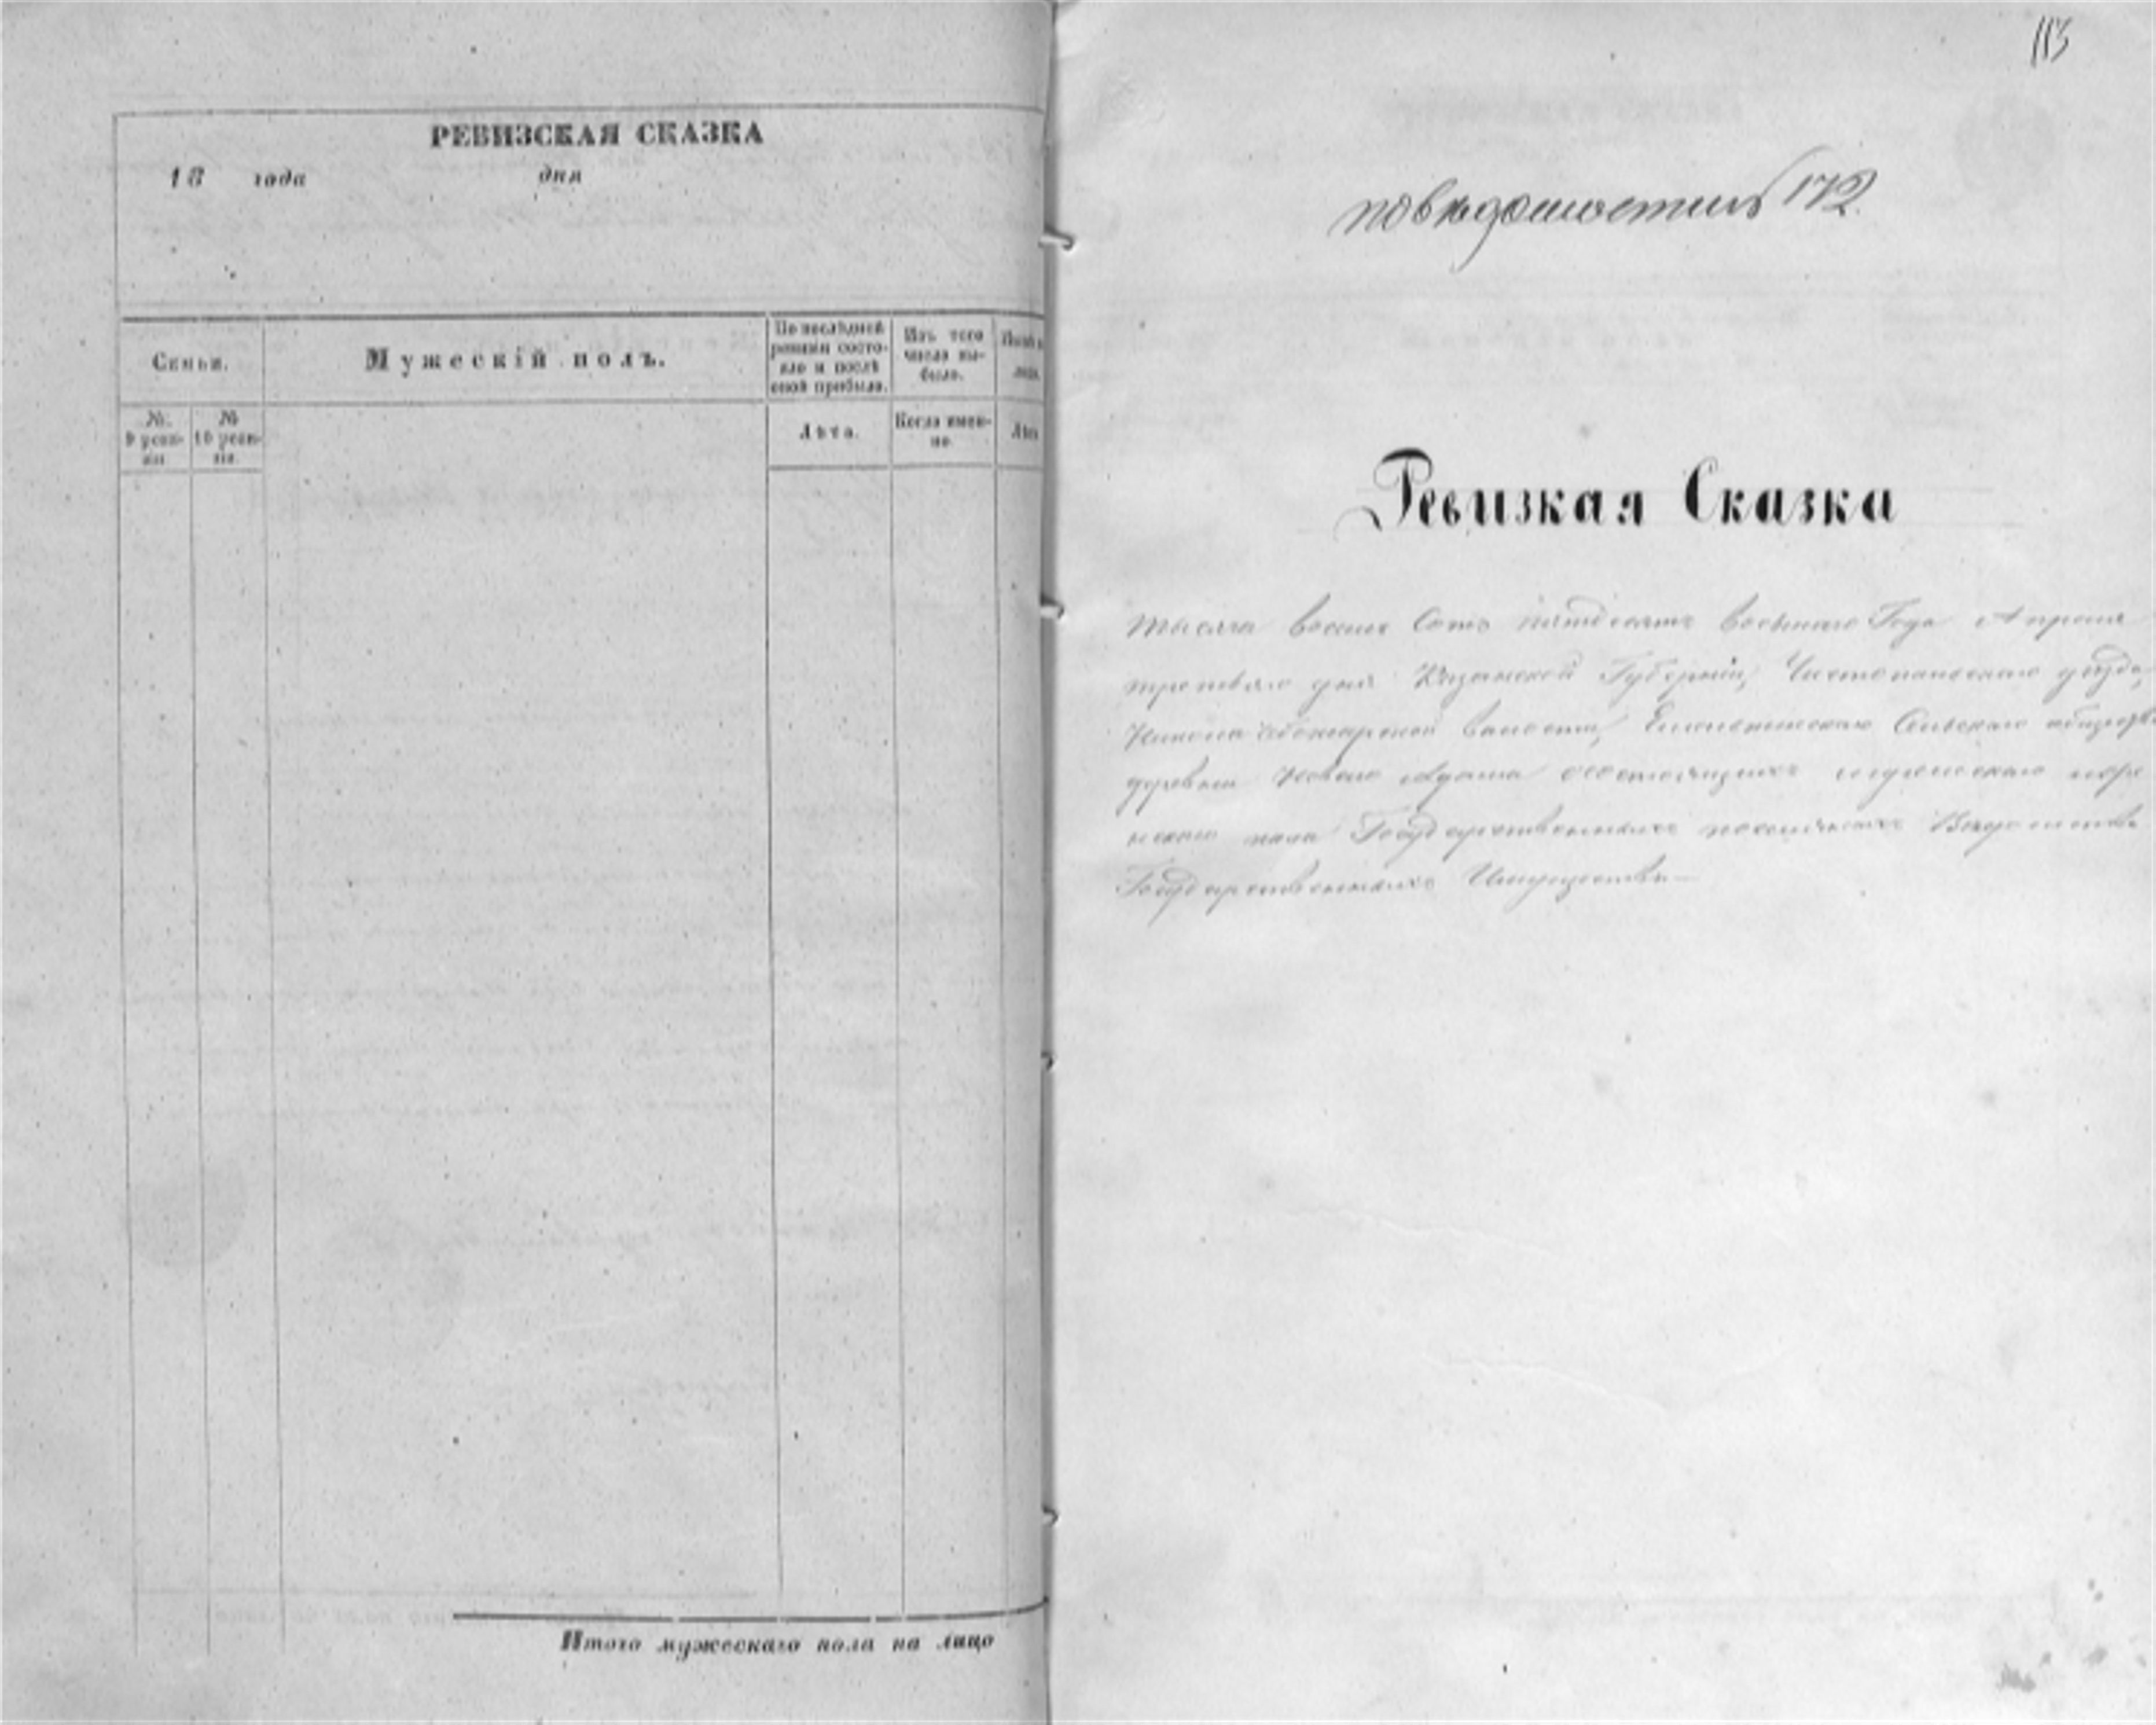 РЕВИЗСКАЯ СКАЗКА
18 года дня
Семьи.
Мужескій полъ.
По послѣдней ревизіи состояло и послѣ оной прибыло.
Изъ того числа выбыло.
№. 9 ревизіи
№ 10 ревизіи.
Лѣта.
Когда именно.
Лѣта
Итого мужескаго пола на лицо
113
по вѣдомости 172
Ревизкая Сказка
тысяча восемь Сотъ пятдесятъ восьмаго Года Апреля
третьяго дня Казанской Губерніи, Чистопольскаго уѣзда,
волости, Сельскаго
деревни Новаго состоящихъ мужескаго
пола Государственныхъ поселянахъ
Государственныхъ Имуществъ